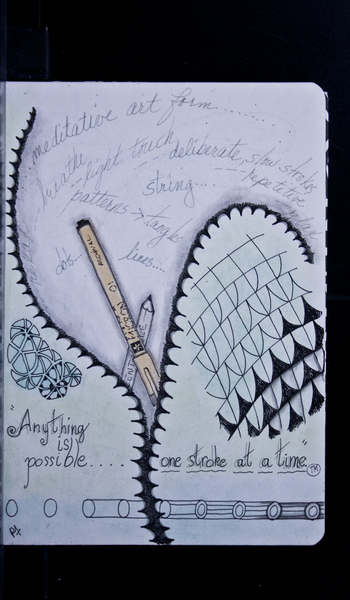 meditative art form.......
breathe
light touch
deliberate, slow strokes
string....
repetitive
patterns > tangles
dots...
lines....
MICRON 01
"Anything
is
possible.....
one stroke at a time."
TM